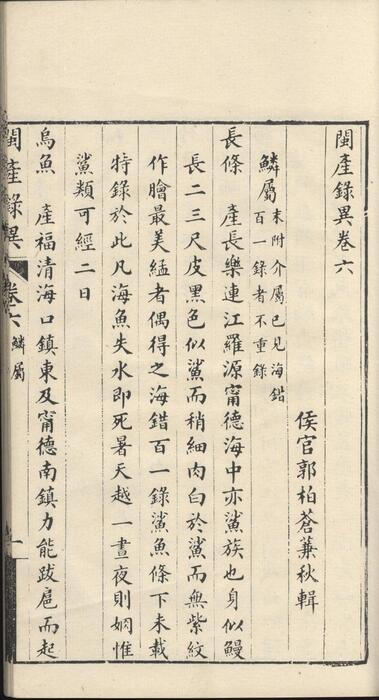 閩產錄異卷六
侯官郭柏蒼蒹秋輯
鱗屬 末附介屬已見海錯
百一錄者不重錄
長條 產長樂連江羅源甯德海中亦鯊族也身似鰻
長二三尺皮黑色似鯊而稍細肉白於鯊而無紫紋
作膾最美緍者偶得之海錯百一錄鯊魚條下未載
特錄於此凡海魚失水即死暑天越一晝夜則𦚾惟
鯊類可經二日
烏魚 產福清海口鎮東及甯德南鎮力能跋扈而起
閩產錄異 卷六 鱗屬 一